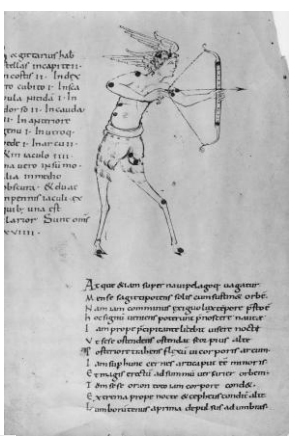 Sagittarius hab
stellas in capite II·
in costis II· In dex
tro cubito I· In sca
pula nitida I· In
dorso II· In cauda
II· In anteriore
genu I· In utroq·
pede I· In arcu II·
in iaculo IIII·
na uero ipsū mo
in medio
obscura· & duae
in pennis iaculi· ex
quib; una est
clarior· Sunt oms
XVIIII·
Atque etiam super naui pelagoq· uagatur
Mense sagittipotens solis cum sustinet orbē·
Nam iam cum minus exiguo lux tempore
hoc signū ueniens poterunt noctere nautae
Iam prope pcipitante licebit uisere nocte
Vt sese ostendens ostendat scorpius alte
posteriore trahens flexū ui corporis arcum·
Iam supra cernes arctū caput eē minoris
Et magis erectū ad summū uersarier orbem·
Tum sese orion toto iam corpore condet
Extrema prope nocte & cepheus condit alte
Lumborū tenus a prima depulsus ad umbras·